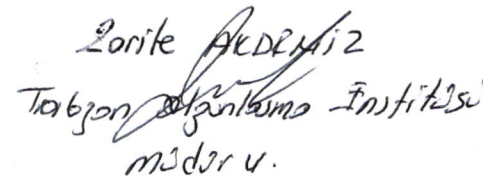 Zarife AKDENİZ
Trabzon Olgunlaşma Enstitüsü
müdürü.